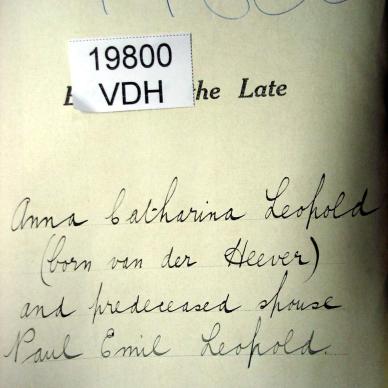 19800
VDH
the Late
Anna Catharina Leopold
(born van der Heever)
and predeceased spouse
Paul Emil Leopold.